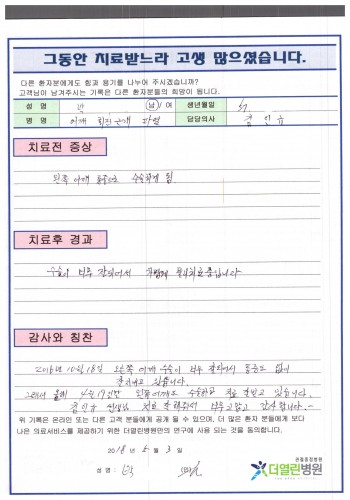 그동안 치료받느라 고생 많으셨습니다.
다른 환자분에게도 힘과 용기를 나누어 주시겠습니까?
고객님이 남겨주시는 기록은 다른 환자분들의 희망이 됩니다.
성 명 박 남 / 여 생년월일
병 명 어깨 회전근개 파열 담당의사 김인규
치료전 증상
왼쪽 어깨 통증으로 수술하게 됨.
치료후 경과
수술이 너무 잘되어서 물리치료중입니다
감사와 칭찬
2016년 10月18日 오른쪽 어깨 수술이 너무 잘되어서 통증도 없이
잘지내고 있습니다.
그래서 올해 4월 19일 왼쪽어깨도 수술하고 치료 잘받고 있습니다.
김인규 선생님 치료 잘해주셔서 너무고맙고 감사합니다.
위 기록은 온라인 또는 다른 고객 분들에게 공개 될 수 있으며, 더 많은 환자 분들에게 보다
나은 의료서비스를 제공하기 위한 더열린병원만의 연구에 사용 되는 것을 동의합니다.
2018 년 5 월 3 일
성 명 : 박
관절중점병원
더열린병원